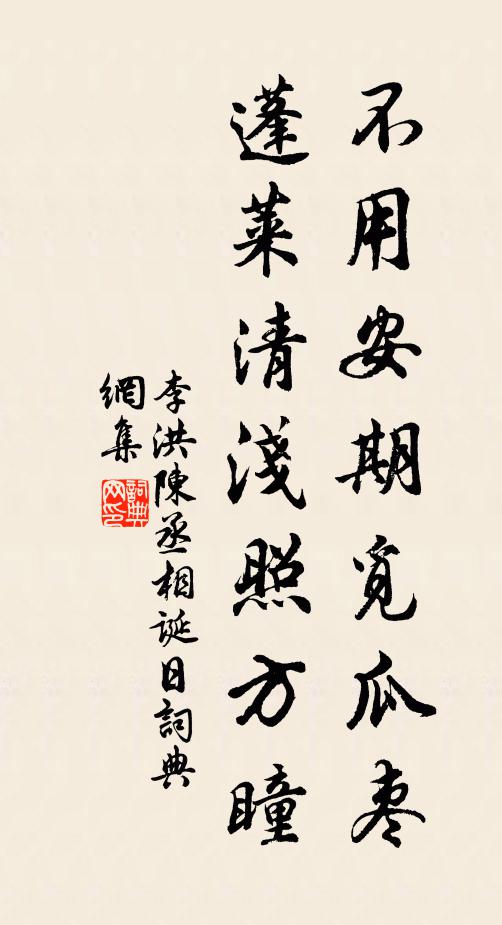 不用安期覓瓜棗
蓬萊清淺照方瞳
李洪陳丞相誕日詞典
網集
詞典網印